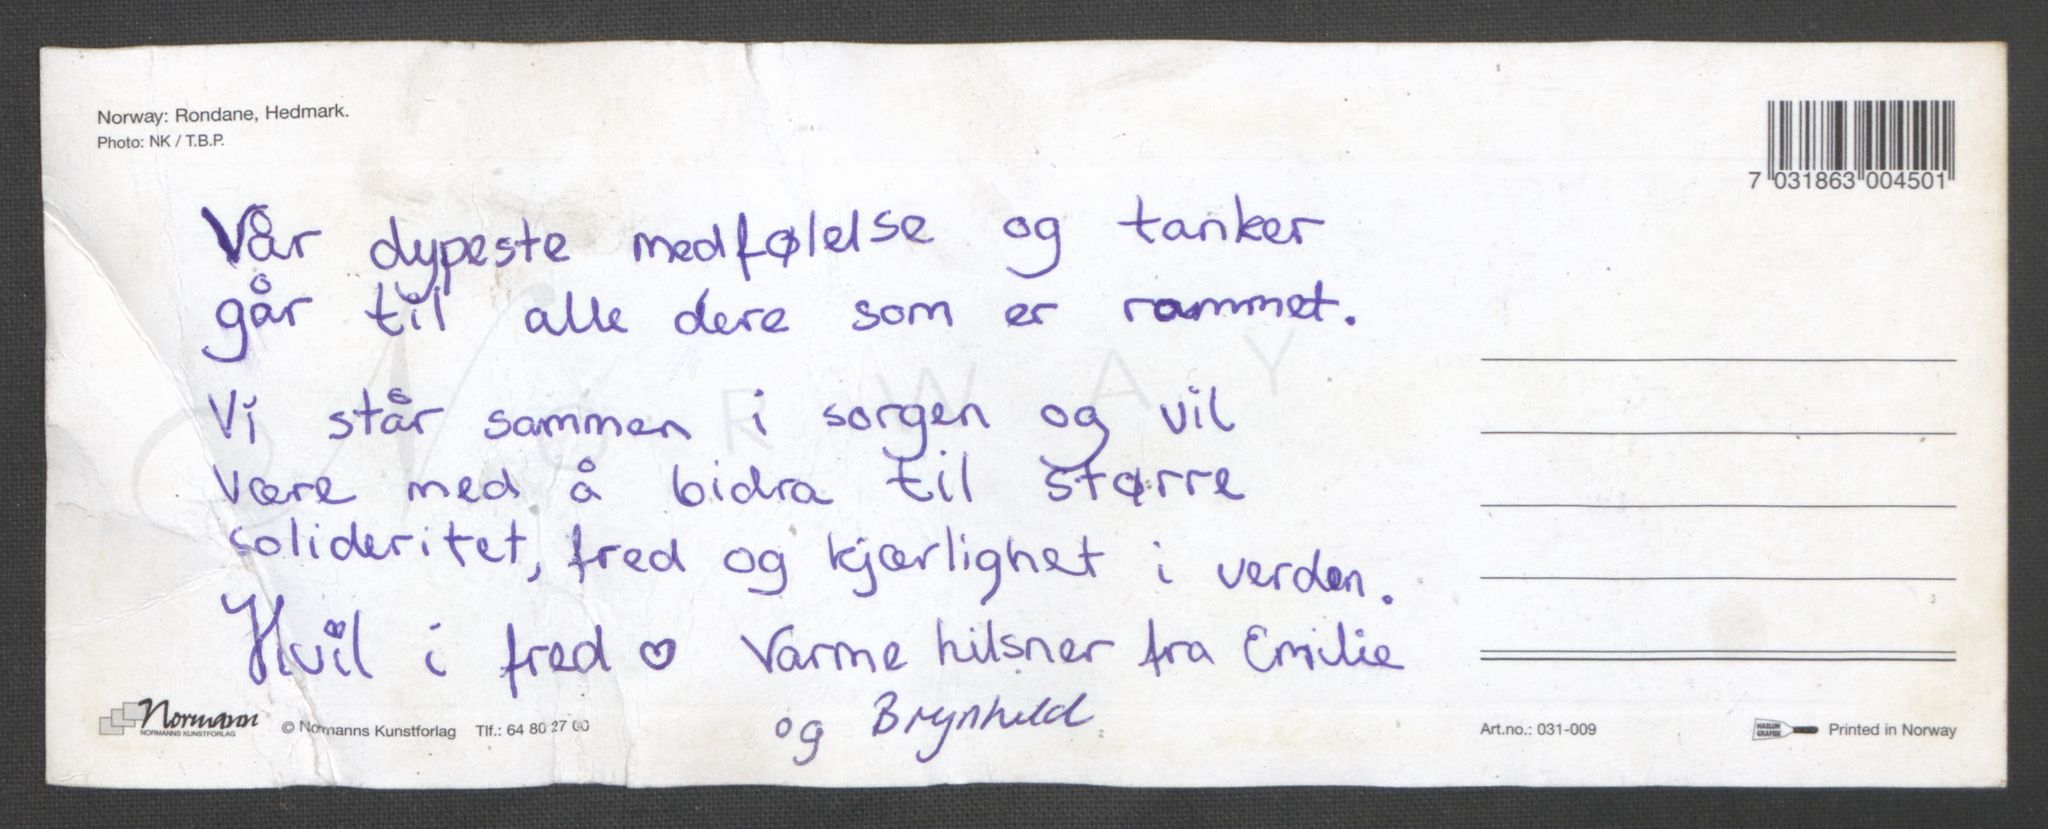 Norway: Rondane, Hedmark.
Photo: NK / T.B.P.
7 031863 004501
Vår dypeste medfølelse og tanker
går til alle dere som er rammet.
NORWAY
Vi står sammen i sorgen og vil
være med å bidra til større
solideritet, fred og kjærlighet i verden.
Hvil i fred ♡ Varme hilsner fra Emilie
og Brynhild
Normann
NORMANNS KUNSTFORLAG
© Normanns Kunstforlag Tlf.: 64 80 27 00
Art.no.: 031-009
HASLUM GRAFISK
Printed in Norway